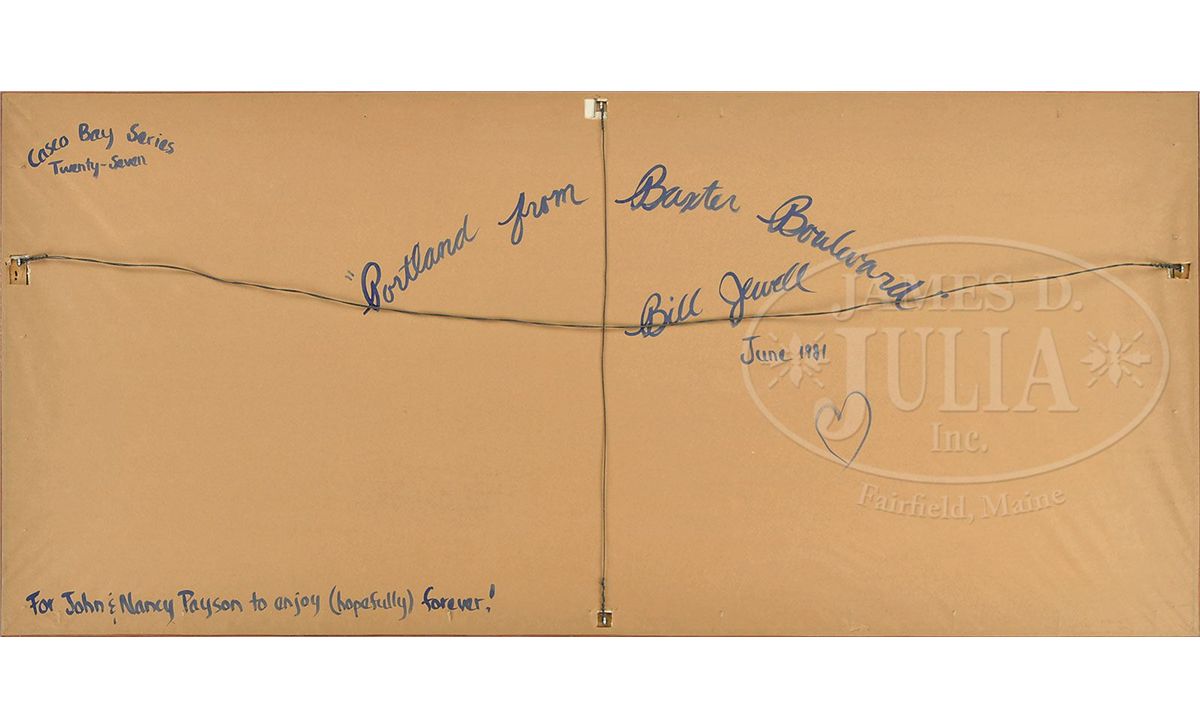 Casco Bay Series
Twenty-Seven
"Portland from Baxter Boulevard"
Bill Jewell
June 1981
JAMES D.
JULIA
Inc.
Fairfield, Maine
For John & Nancy Payson to enjoy (hopefully) forever!